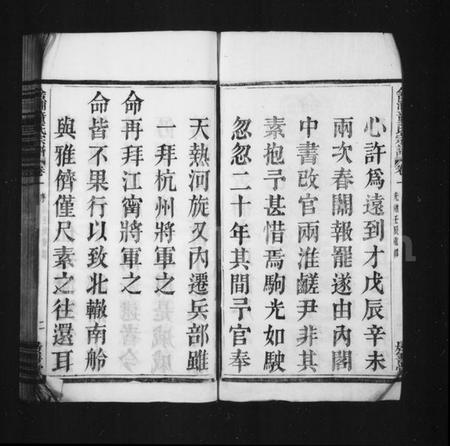 心許爲遠到才戊辰辛未
兩次春闈報罷遂由內閣
中書改官兩淮鹺尹非其
素抱予甚惜焉駒光如駛
忽忽二十年其間予官奉
天熱河旋又內遷兵部雖
拜杭州將軍之
命再拜江甯將軍之
命皆不果行以致北轍南舲
與雅儕僅尺素之往還耳